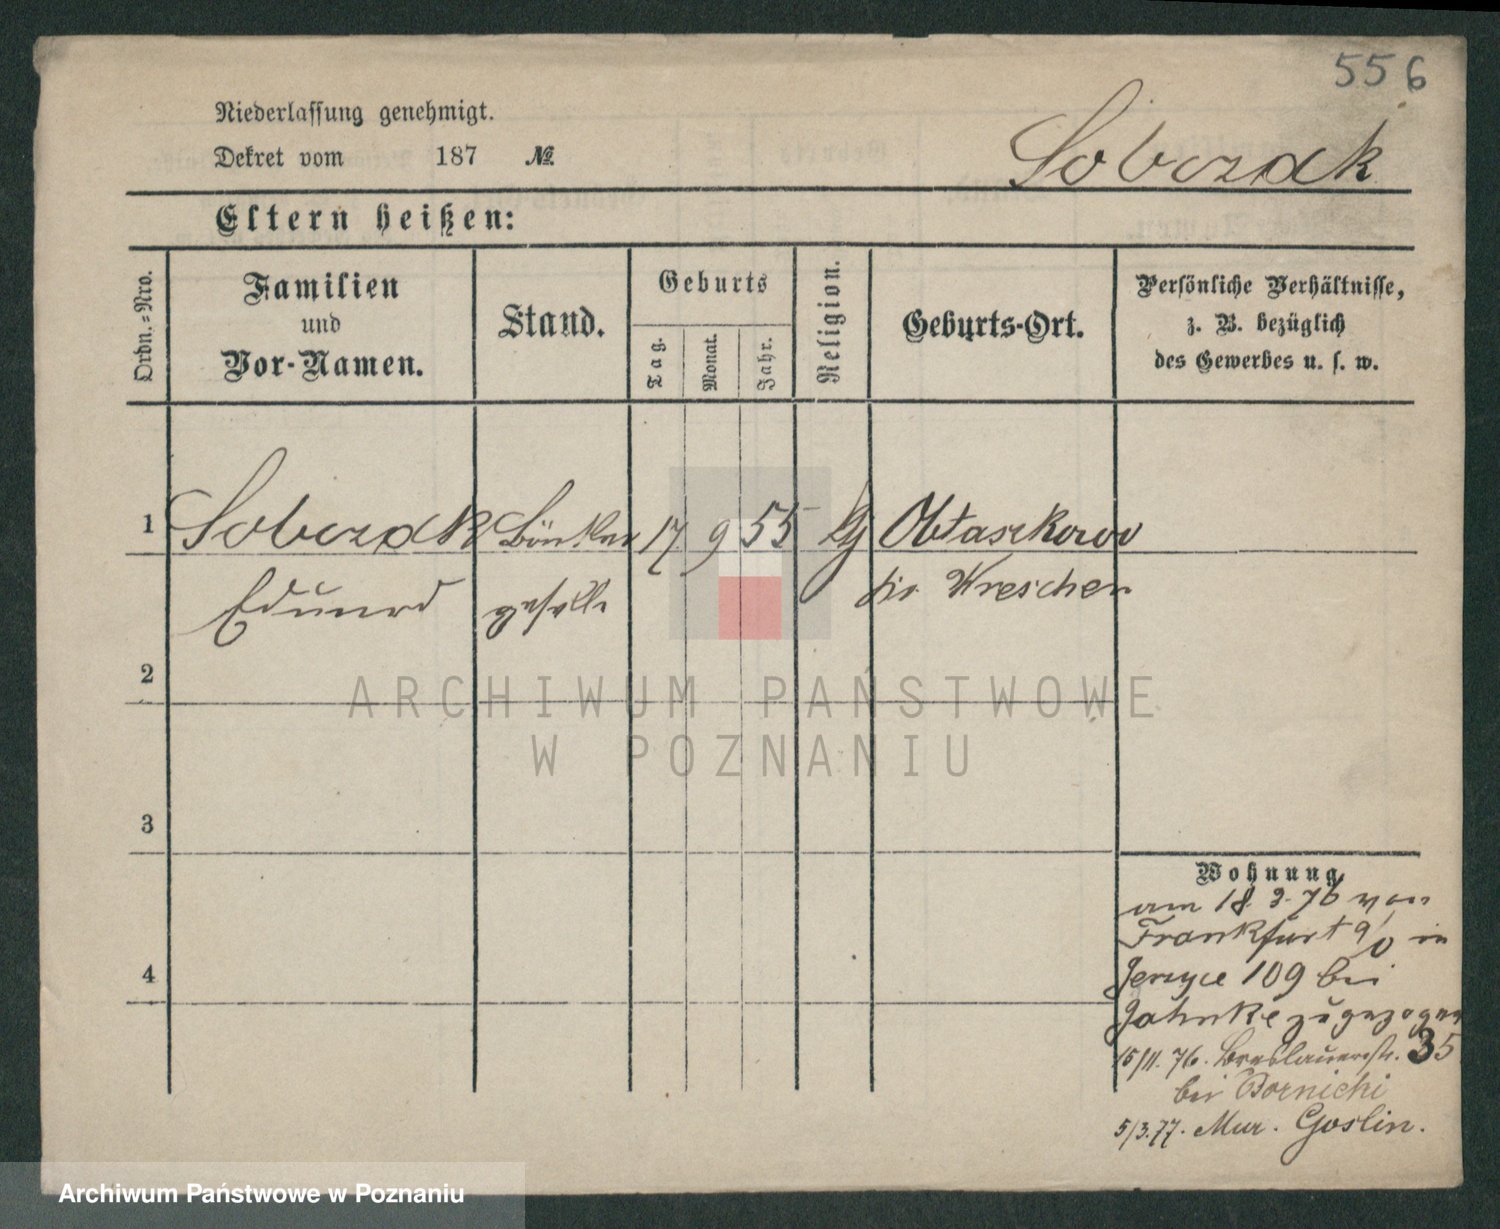 556
Niederlassung genehmigt.
Dekret vom 187 №
Sobczak
Eltern heißen:
Ordn.-Nro.
Familien
und
Vor-Namen.
Stand.
Geburts
Tag.
Monat.
Jahr.
Religion.
Geburts-Ort.
Persönliche Verhältnisse,
z. B. bezüglich
des Gewerbes u. s. w.
1 Sobczak 17 9 55 Obłaszkowo
Eduard geselle Kr. Wreschen
2
ARCHIWUM PAŃSTWOWE
W POZNANIU
3
Wohnung
am 18. 3. 76 von
Frankfurt a/O in
4
Jerzyce 109 bei
Jahnke zugezogen
15/11. 76. Breslauerstr. 35
bei Dornicki
5/3.77. Mur. Goslin.
Archiwum Państwowe w Poznaniu